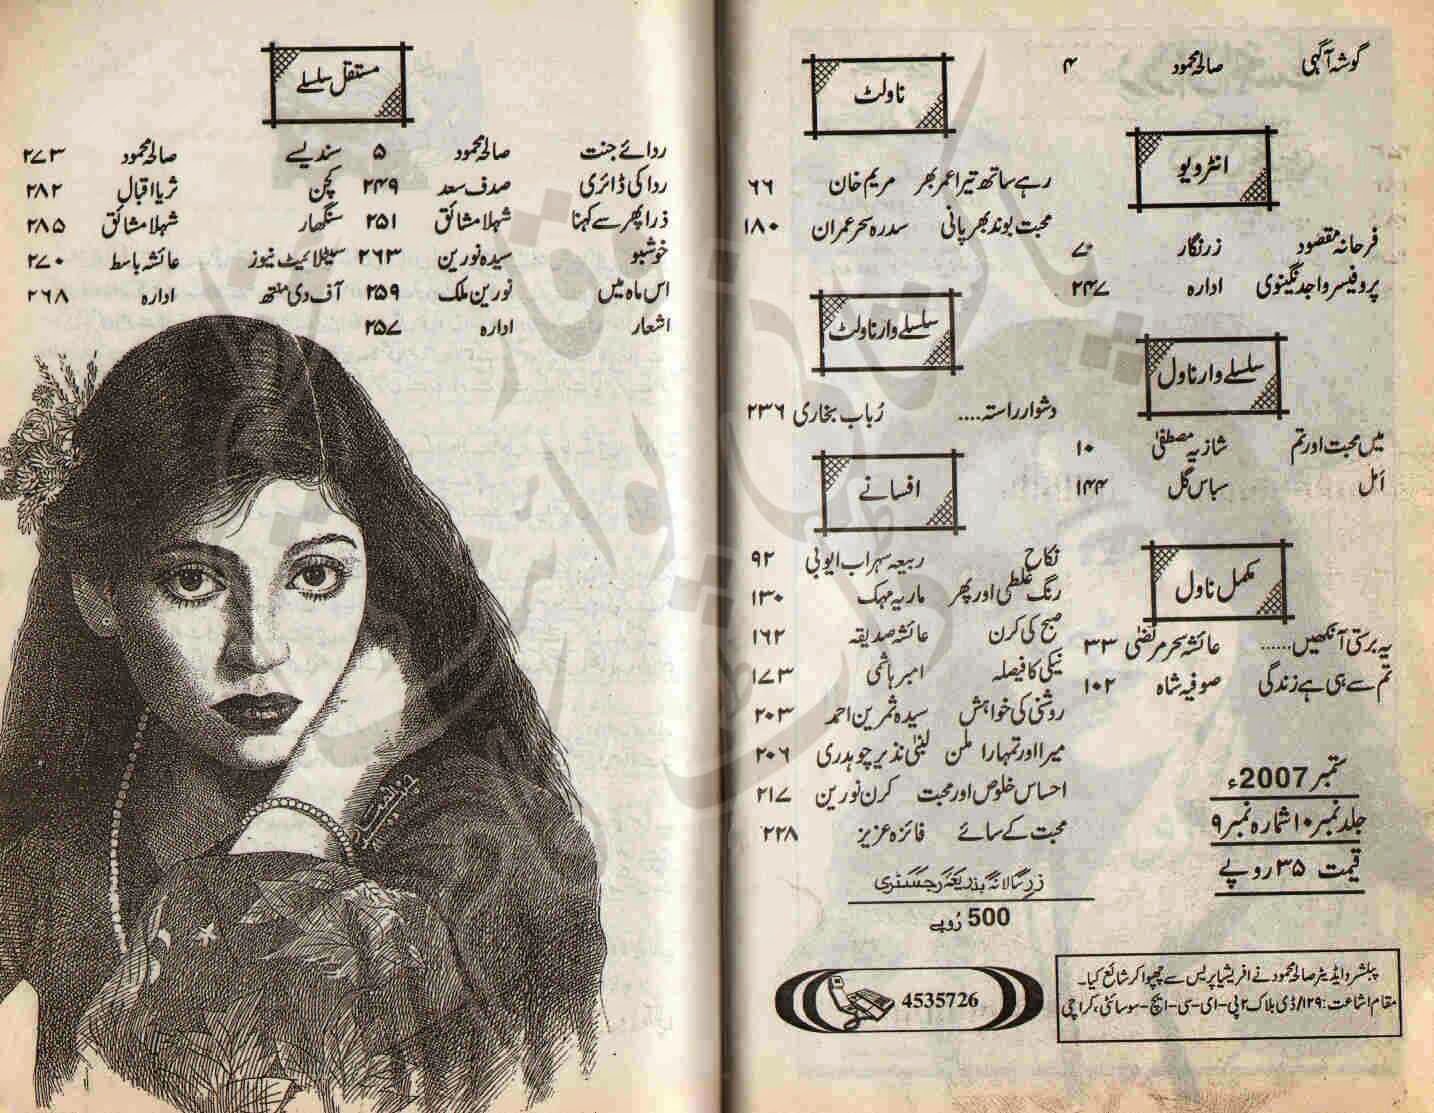 گوشہ آگہی صالحہ محمود ۴
انٹرویو
فرحانہ مقصود زرنگار ۷
پروفیسر واجد نگینوی ادارہ ۲۴۷
سلسلے وار ناول
میں محبت اور تم شازیہ مصطفیٰ ۱۰
اَمل سباس گل ۱۴۴
مکمل ناول
یہ برستی آنکھیں...... عائشہ سحر مرتضیٰ ۳۳
تم سے ہی ہے زندگی صوفیہ شاہ ۱۰۲
ستمبر 2007ء
جلد نمبر ۱۰ شمارہ نمبر ۹
قیمت ۳۵ روپے
ناولٹ
رہے ساتھ تیرا عمر بھر مریم خان ۶۶
محبت بوند بھر پانی سدرہ سحر عمران ۱۸۰
سلسلے وار ناولٹ
دشوار راستہ.... رُباب بخاری ۲۳۶
افسانے
نکاح ربیعہ سہراب ایوبی ۹۲
رنگ غلطی اور پھر ماریہ مہک ۱۳۰
صبح کی کرن عائشہ صدیقہ ۱۶۲
نیکی کا فیصلہ امبر ہاشمی ۱۷۳
روشنی کی خواہش سیدہ ثمرین احمد ۲۰۳
میرا اور تمہارا ملن لبنیٰ نذیر چوہدری ۲۰۶
احساس خلوص اور محبت کرن نورین ۲۱۷
محبت کے سائے فائزہ عزیز ۲۲۸
زرِ سالانہ بذریعہ رجسٹری
500 رُوپے
4535726
پبلشر و ایڈیٹر صالحہ محمود نے افریشیا پریس سے چھپوا کر شائع کیا۔
مقام اشاعت: ۱۲۹/ڈی بلاک ۲ پی-ای-سی-ایچ-سوسائٹی، کراچی
مستقل سلسلے
ردائے جنت صالحہ محمود ۵ سندیسے صالحہ محمود ۲۷۳
ردا کی ڈائری صدف سعد ۲۴۹ کچن ثریا اقبال ۲۸۲
ذرا پھر سے کہنا شہلا مشائق ۲۵۱ سنگھار شہلا مشائق ۲۸۵
خوشبو سیدہ نورین ۲۶۳ سیٹلائیٹ نیوز عائشہ باسط ۲۷۰
اس ماہ میں نورین ملک ۲۵۹ آف دی منتھ ادارہ ۲۶۸
اشعار ادارہ ۲۵۷